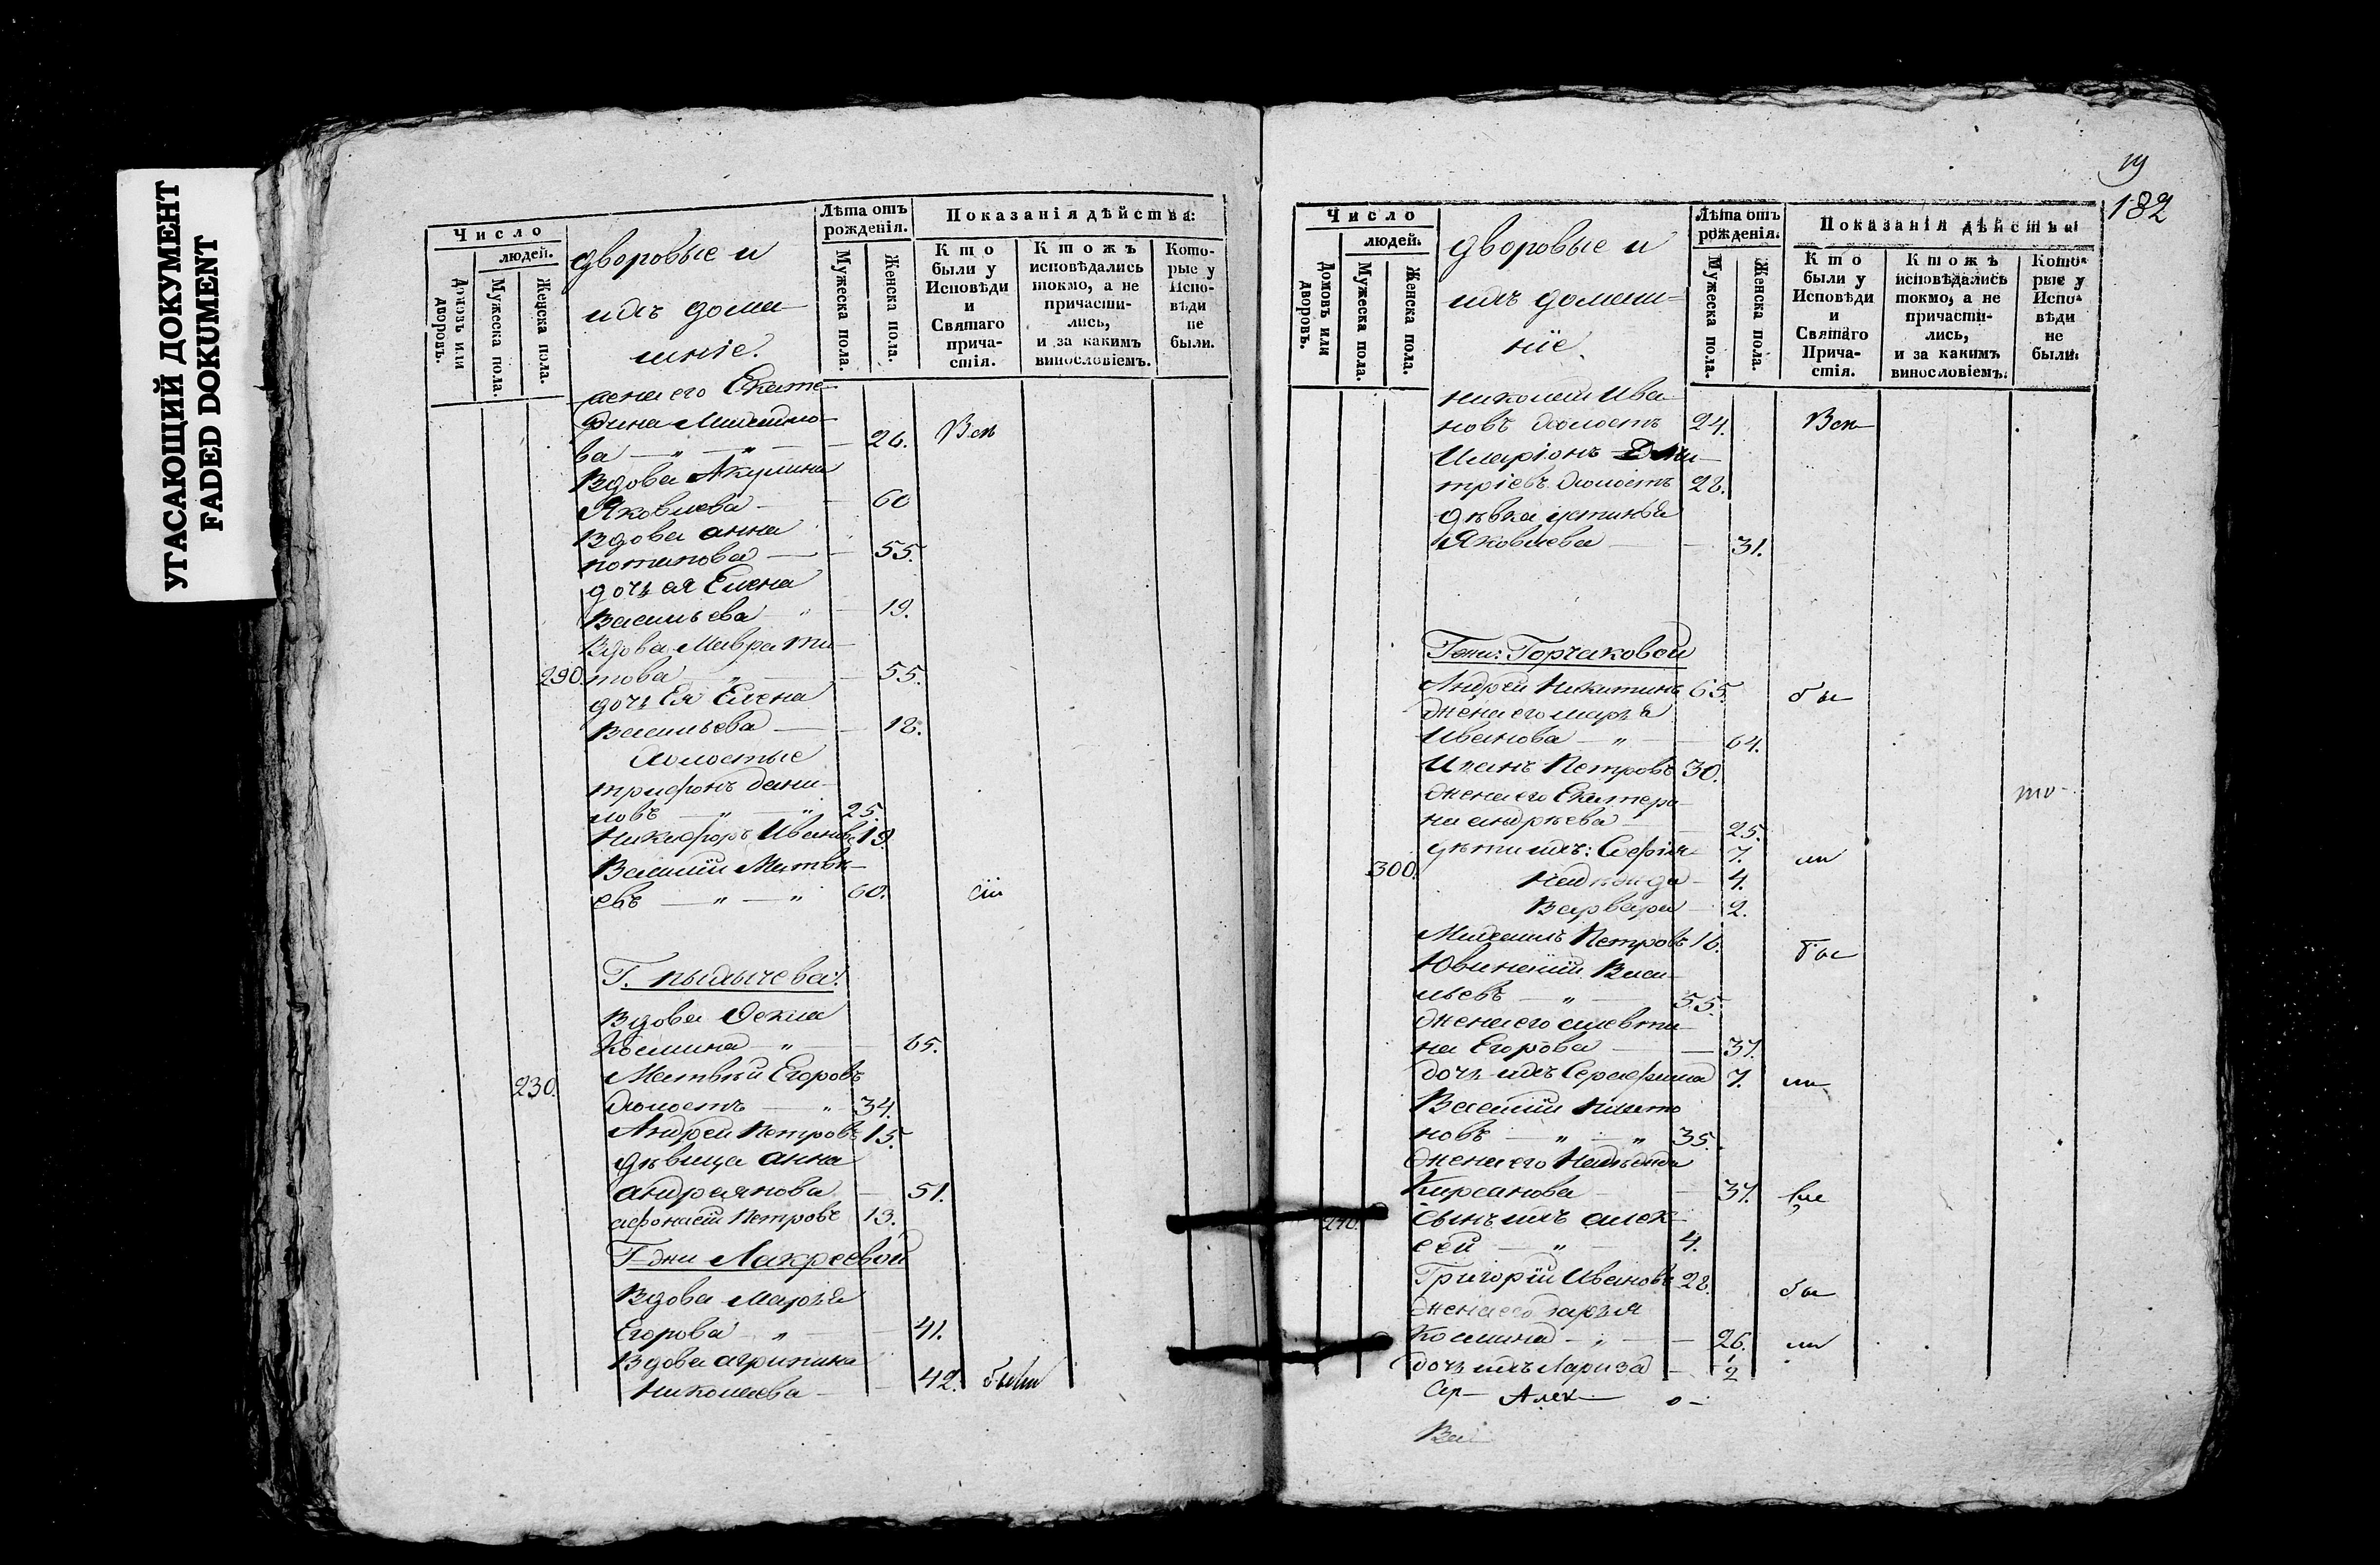 УГАСАЮЩИЙ ДОКУМЕНТ
FADED DOKUMENT
Число
людей.
Домовъ или дворовъ.
Мужеска пола.
Женска пола.
дворовые и
ихъ дома
шніе.
Лѣта отъ рожденія.
Мужеска пола.
Женска пола.
Показанія дѣйства:
Кто были у Исповѣди и Святаго причастія.
Ктожъ исповѣдались токмо, а не причастились, и за какимъ винословіемъ.
Которые у Исповѣди не были.
жена его Екате
рина Михайло
ва — „ — „ — 26.
Вдова Акулина
Яковлева — 60
Вдова анна
потапова — 55.
дочь ея Елена
Васильева „ — 19.
Вдова Мавра ти
290. това „ — 55.
дочь Ея Елена
Васильева — 18.
Холостые
трифонъ дани
ловъ — „ — „ 25.
Никифоръ Ивановъ 19.
Василій Матвѣ
евъ — „ — „ 60.
Вдова Фекла
Космина — „ — 65.
230. Матвѣй Егоровъ
холостъ — „ 34.
Андрей Петровъ 15.
дѣвица анна
андреянова — 51.
афонасій Петровъ 13.
Г-жи Лакреевой
Вдова Марья
Егорова „ — 41.
Вдова агрипина
Николаева — 42. были
19
182
Число
людей.
Домовъ или дворовъ.
Мужеска пола.
Женска пола.
дворовые и
ихъ домаш=
ніе.
Лѣта отъ рожденія.
Мужеска пола.
Женска пола.
Показанія дѣйства:
Кто были у Исповѣди и Святаго Причастія.
Ктожъ исповѣдались токмо, а не причастились, и за какимъ винословіемъ.
Которые у Исповѣди не были.
николай Ива
новъ холостъ 24.
Иларіонъ Дми
тріевъ холостъ 28.
дѣвка устинья
Яковлева — 31.
Гжи: Горчаковой
Андрей Никитинъ 65. бы
жена его марья
Иванова — „ — 64.
Иванъ Петровъ 30.
жена его Екатери
на андрѣева — 25.
дѣти ихъ: Софія 7. ли
300. Надѣжда — 4.
Варвара — 2.
Михаилъ Петровъ 16. бы
Ювиналій Васи
льевъ — „ — 55.
жена его алевти
на Егорова — 37.
дочь ихъ Серафима 7. ли
Василій плато
новъ — „ — „ 35.
жена его Надѣжда
Кирсанова — 37.
240. сынъ ихъ алек
сей — „ — 4.
Григорій Ивановъ 28. бы
жена его дарья
Космина — „ — 26. ли
дочь ихъ Лариза — 2